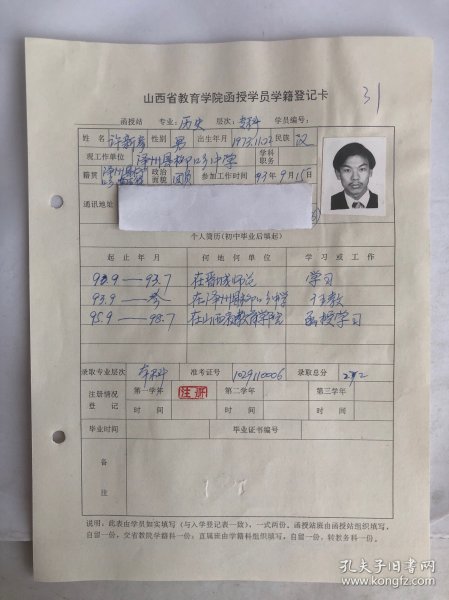 山西省教育学院函授学员学籍登记卡
31
函授站 专业:历史 层次:专科 学员编号:
姓名 性别 男 出生年月 1973.11.23 民族 汉
现工作单位 泽州县柳口乡中学 学科职务
籍贯 泽州县 政治面貌 团员 参加工作时间 93年9月15日
通讯地址
个人简历(初中毕业后填起)
起止年月 何地何单位 学习或工作
90.9——93.7 在晋城师范 学习
93.9——今 在泽州县柳口乡中学 任教
95.9——98.7 在山西省教育学院 函授学习
录取专业层次 专科 准考证号 1029110006 录取总分
注册情况登记 第一学年 注册 第二学年 第三学年
时间 时间 时间
毕业时间 毕业证书编号
备注
说明:此表由学员如实填写(与入学登记表一致),一式两份、函授站班由函授站组织填写,
自留一份,交省教院学籍科一份;直属班由学籍科组织填写,自留一份,转教务科一份。
孔夫子旧书网
kongfz.com